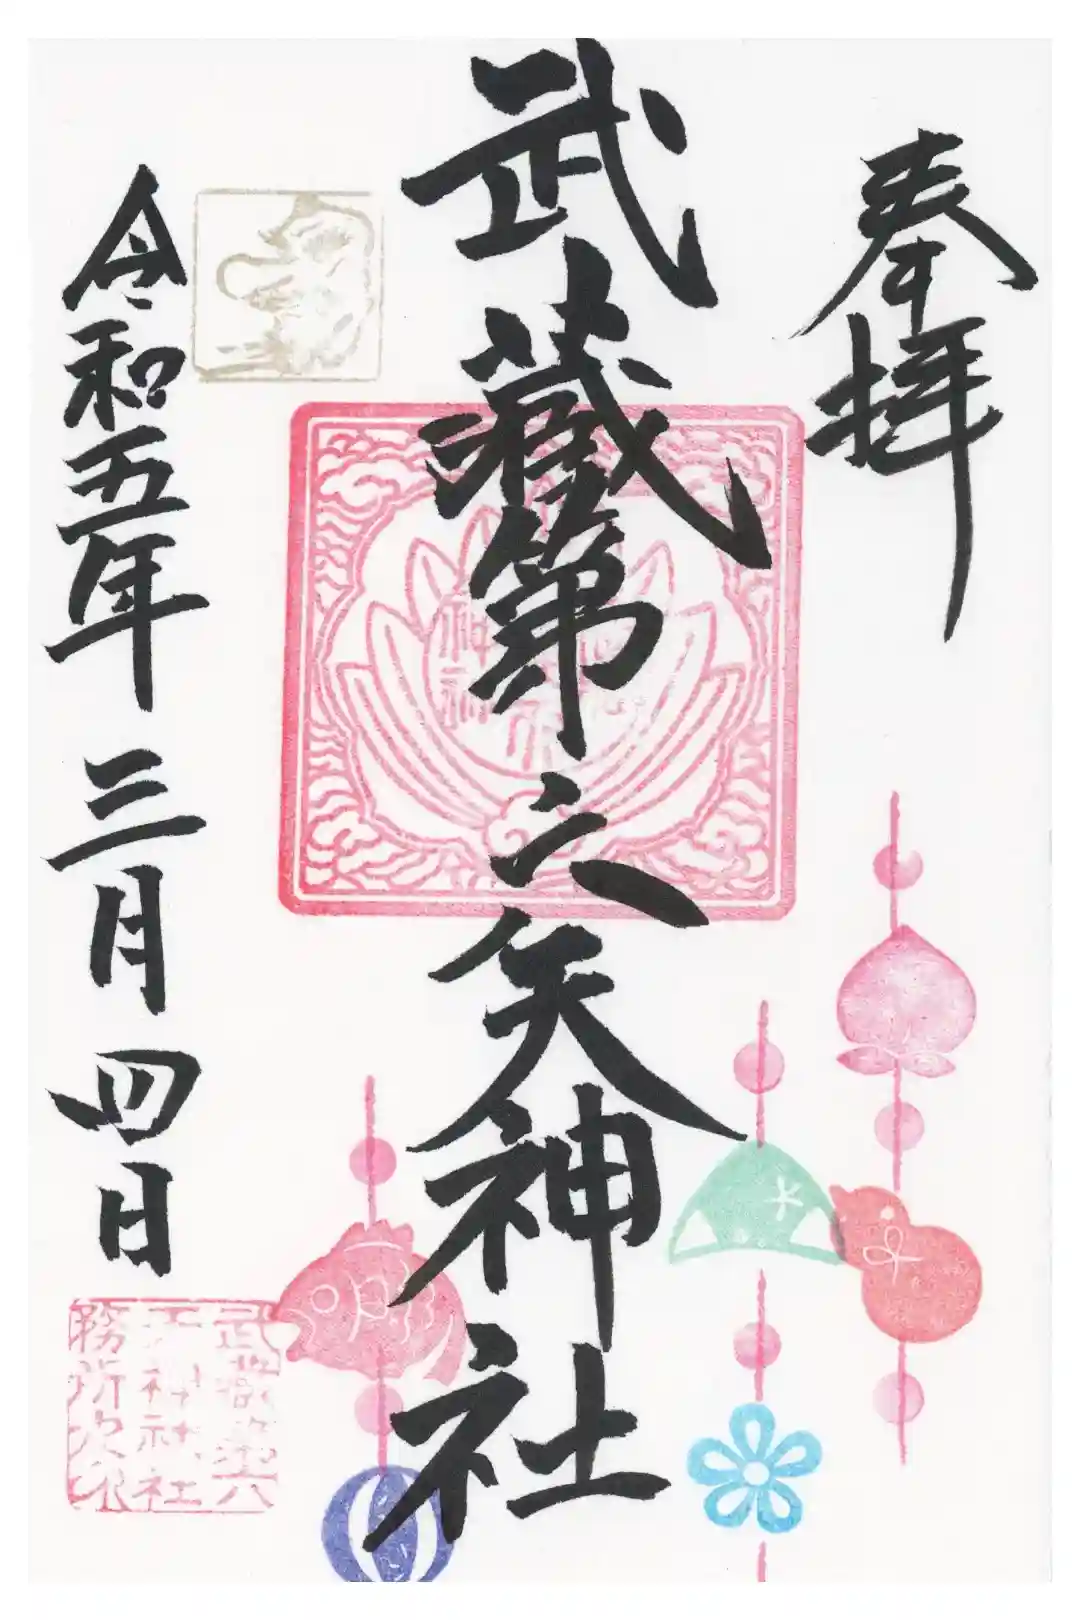 奉拝
武蔵第六天神社
令和五年三月四日
武蔵第六
天神社社
務所之印